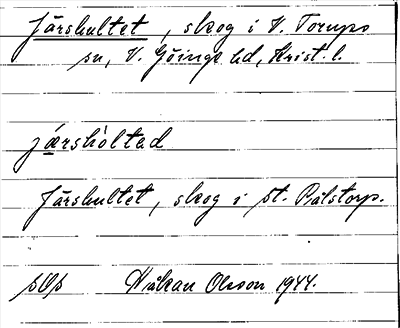 Järshultet, skog i V. Torups
sn, V. Göinge hd, Krist. l.
jæ̀rshòltad
Järshultet, skog i St. Rålstorp.
Håkan Olsson 1944.